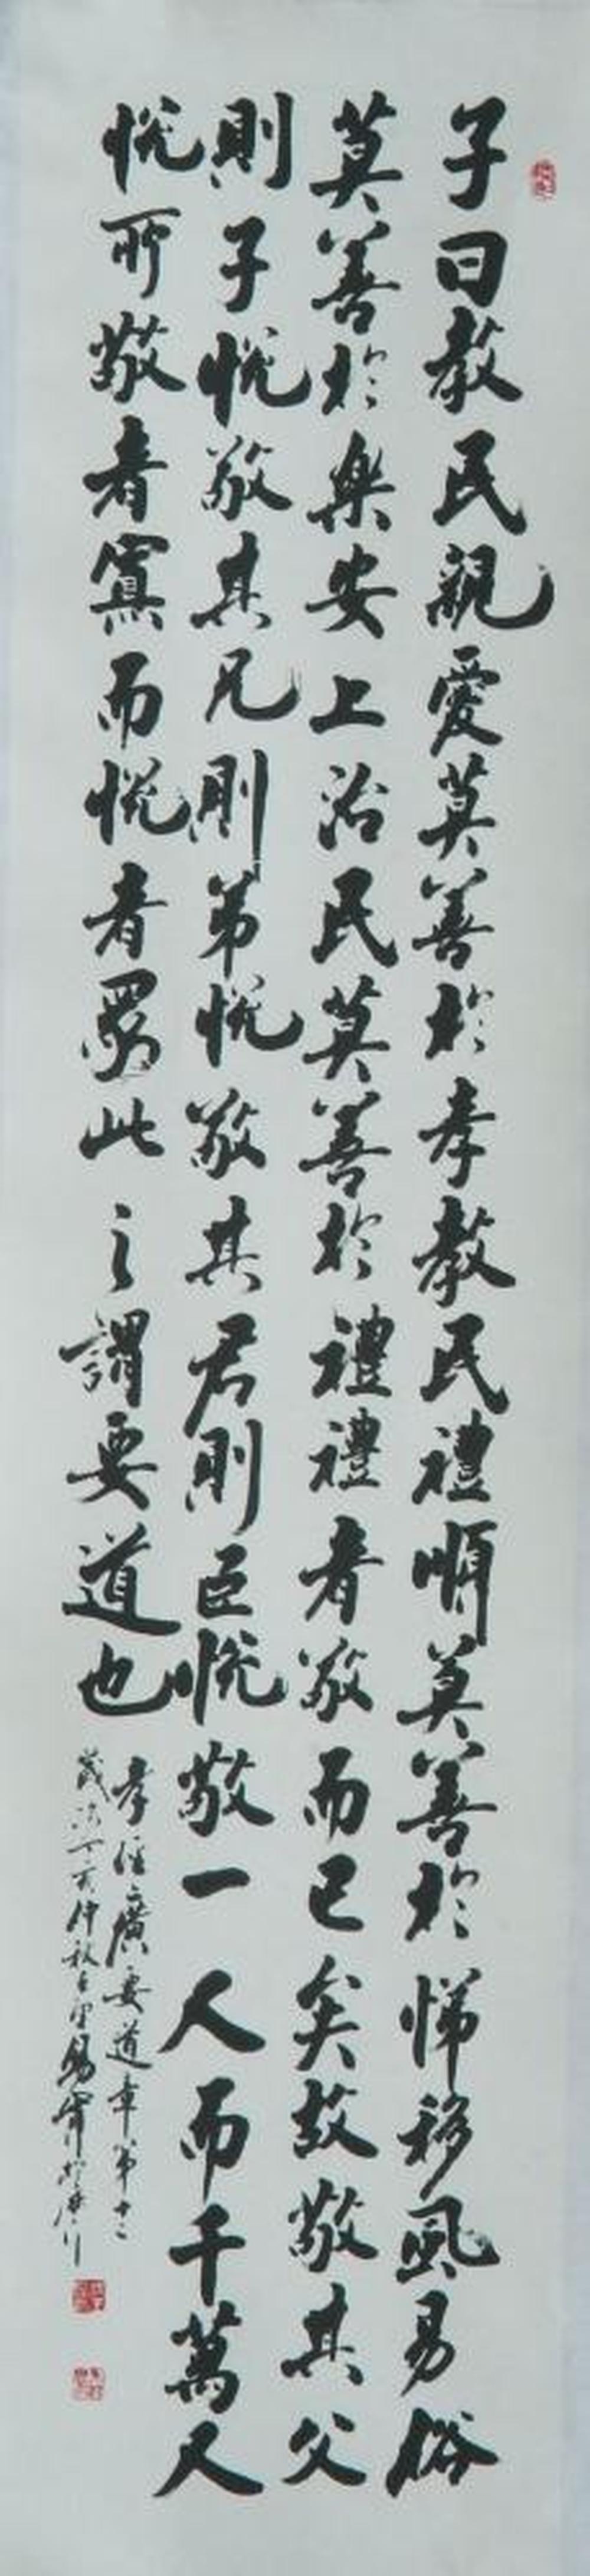 子曰教民親愛莫善於孝教民禮順莫善於悌移風易俗
莫善於樂安上治民莫善於禮禮者敬而已矣故敬其父
則子悅敬其兄則弟悅敬其君則臣悅敬一人而千萬人
悅所敬者寡而悅者眾此之謂要道也
孝經廣要道章第十二
歲次丁亥仲秋